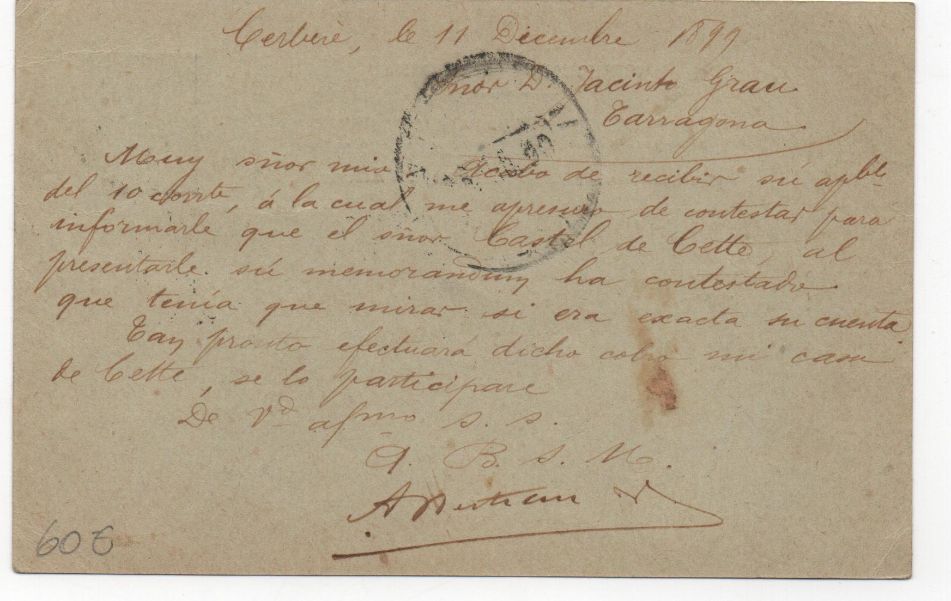 Cerbère, le 11 Décembre 1899
ñor D. Jacinto Grau
Tarragona
Muy sñor mio Acabo de recibir sú apble
del 10 corrte, á la cual me apresuro de contestar para
informarle que el sñor Castel de Cette, al
presentarle sú memorandum ha contestado
que tenía que mirar si era exacta su cuenta.
Tan pronto efectuará dicho cobro mi casa
de Cette, se lo participare
De Vd afmo s. s.
Q. B. S. M.
60€